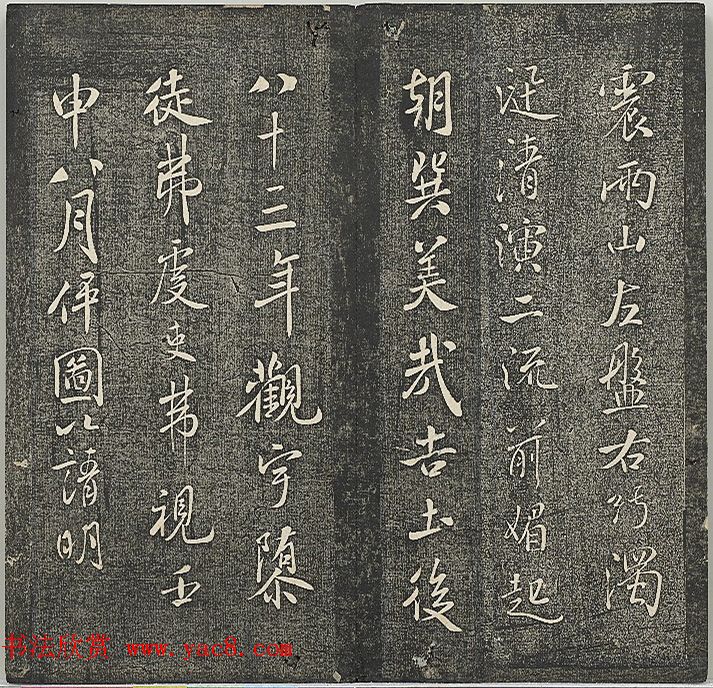 震兩山左盤右紆濁
涇清演二流前媚起
朝巽美哉吉土後
八十三年觀宇隳
徒弗處吏弗視壬
申八月伻圖以請明
书法欣赏 www.yac8.com